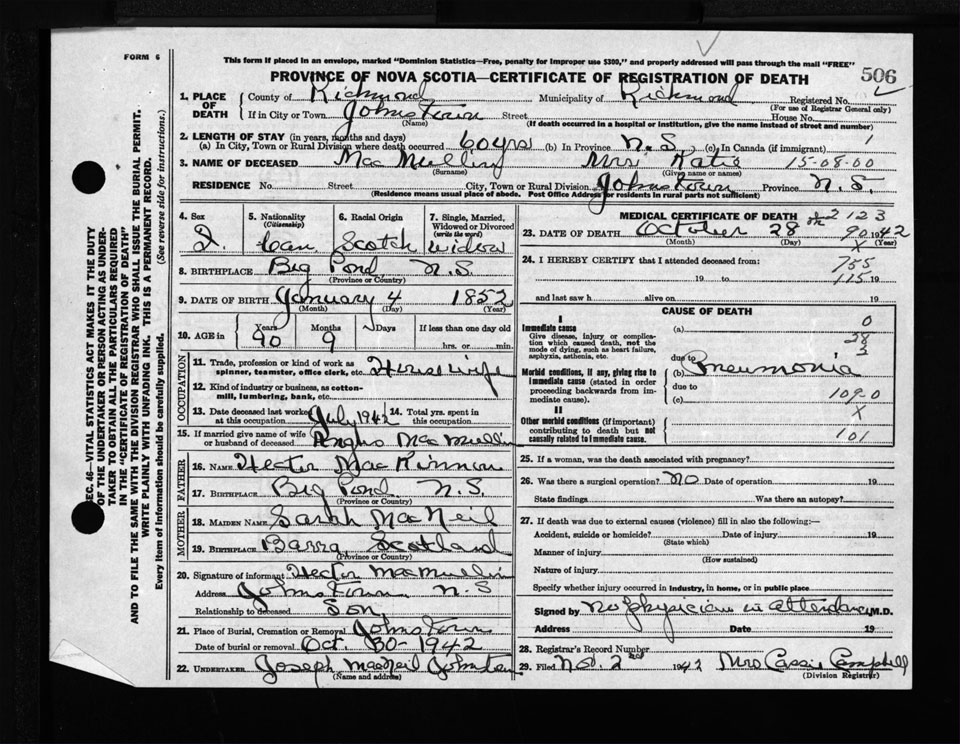 FORM 6
This form if placed in an envelope, marked "Dominion Statistics—Free, penalty for improper use $300," and properly addressed will pass through the mail "FREE"
PROVINCE OF NOVA SCOTIA—CERTIFICATE OF REGISTRATION OF DEATH 506
SEC. 46—VITAL STATISTICS ACT MAKES IT THE DUTY
OF THE UNDERTAKER OR PERSON ACTING AS UNDER-
TAKER TO OBTAIN ALL THE PARTICULARS REQUIRED
IN THE "CERTIFICATE OF REGISTRATION OF DEATH"
AND TO FILE THE SAME WITH THE DIVISION REGISTRAR WHO SHALL ISSUE THE BURIAL PERMIT.
WRITE PLAINLY WITH UNFADING INK. THIS IS A PERMANENT RECORD.
Every item of information should be carefully supplied. (See reverse side for instructions.)
1. PLACE OF DEATH County of Richmond Municipality of Richmond Registered No.
(For use of Registrar General only)
If in City or Town Johnstown Street House No.
(Name) (If death occurred in a hospital or institution, give the name instead of street and number)
2. LENGTH OF STAY (in years, months and days) 1
(a) In City, Town or Rural Division where death occurred 60 yrs (b) In Province N.S. (c) In Canada (if immigrant)
3. NAME OF DECEASED MacMullin Mrs Katie 15-08-00
(Surname) (Given name or names)
RESIDENCE No. Street City, Town or Rural Division Johnstown Province N.S.
(Residence means usual place of abode. Post Office Address for residents in rural parts not sufficient)
4. Sex 5. Nationality (Citizenship) 6. Racial Origin 7. Single, Married, Widowed or Divorced (write the word)
Can Scotch widow
8. BIRTHPLACE Big Pond N.S.
(Province or Country)
9. DATE OF BIRTH January 4 1852
(Month) (Day) (Year)
10. AGE in Years Months Days If less than one day old
90 9 hrs. or min.
OCCUPATION
11. Trade, profession or kind of work as spinner, teamster, office clerk, etc. Housewife
12. Kind of industry or business, as cotton-mill, lumbering, bank, etc.
13. Date deceased last worked at this occupation July 1942 14. Total yrs. spent in this occupation
15. If married give name of wife or husband of deceased Angus MacMullin
FATHER
16. NAME Hector MacKinnon
17. BIRTHPLACE Big Pond N.S.
(Province or Country)
MOTHER
18. MAIDEN NAME Sarah MacNeil
19. BIRTHPLACE Barra Scotland
(Province or Country)
20. Signature of informant Hector MacMullin
Address Johnstown N.S
Relationship to deceased Son
21. Place of Burial, Cremation or Removal Johnstown
Date of burial or removal Oct. 30-1942
22. UNDERTAKER Joseph MacNeil Johnstown
(Name and address)
MEDICAL CERTIFICATE OF DEATH 2123
23. DATE OF DEATH October 28 1942
(Month) (Day) (Year)
90
X
24. I HEREBY CERTIFY that I attended deceased from: 755
19 to 115 19
and last saw h alive on 19
CAUSE OF DEATH
I
Immediate cause (a) 0
Give disease, injury or complication which caused death, not the mode of dying, such as heart failure, asphyxia, asthenia, etc. 28
due to
Morbid conditions, if any, giving rise to immediate cause (stated in order proceeding backwards from immediate cause). (b) Pneumonia
due to
(c) 1090
II X
Other morbid conditions (if important) contributing to death but not causally related to immediate cause. 101
25. If a woman, was the death associated with pregnancy?
26. Was there a surgical operation? No Date of operation 19
State findings Was there an autopsy?
27. If death was due to external causes (violence) fill in also the following:—
Accident, suicide or homicide? Date of injury 19
(State which)
Manner of injury
(How sustained)
Nature of injury
Specify whether injury occurred in industry, in home, or in public place
Signed by No physician in attendance, M.D.
Address Date 19
28. Registrar's Record Number
29. Filed Nov. 2nd 1942 Mrs Cassie Campbell
(Division Registrar)